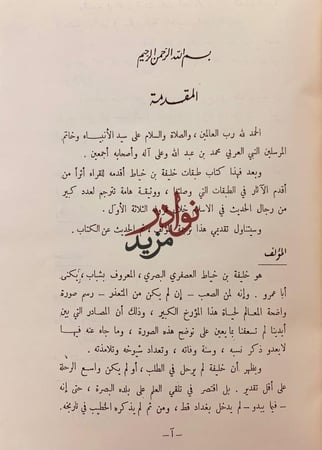 بسم الله الرحمن الرحيم
المقدمة
الحمد لله رب العالمين، والصلاة والسلام على سيد الأنبياء وخاتم
المرسلين النبي العربي محمد بن عبد الله وعلى آله وأصحابه أجمعين.
وبعد فهذا كتاب طبقات خليفة بن خياط أقدمه للقراء أثراً من
أقدم الآثار في الطبقات التي وصلتنا، ووثيقة هامة تترجم لعدد كبير
من رجال الحديث في الاسلام خلال القرون الثلاثة الأول.
وسيتناول تقديمي هذا ترجمة المؤلف ثم الحديث عن الكتاب.
نوادر
مزيد
المؤلف
هو خليفة بن خياط العصفري البصري، المعروف بشباب، يكنى
أبا عمرو. وإنه لمن الصعب – إن لم يكن من المتعذر – رسم صورة
واضحة المعالم لحياة هذا المؤرخ الكبير، وذلك أن المصادر التي بين
أيدينا لم تسعفنا بما يعين على توضيح هذه الصورة، وما جاء عنه فيها
لا يعدو ذكر نسبه، وسنة وفاته، وتعداد شيوخه وتلامذته.
ويظهر أن خليفة لم يرحل في الطلب، أو لم يكن واسع الرحلة
على أقل تقدير. بل اقتصر في تلقي العلم على بلده البصرة، حتى إنه
– فيما يبدو – لم يدخل بغداد قط، ومن ثم لم يذكره الخطيب في تاريخه.
– آ –